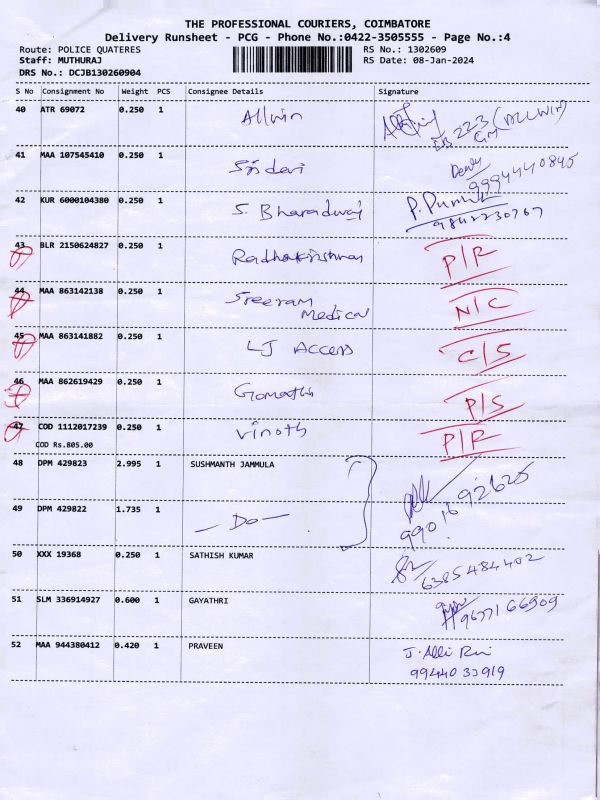 THE PROFESSIONAL COURIERS, COIMBATORE
Delivery Runsheet - PCG - Phone No.:0422-3505555 - Page No.:4
Route: POLICE QUATERES RS No.: 1302609
Staff: MUTHURAJ RS Date: 08-Jan-2024
DRS No.: DCJB130260904
S No Consignment No Weight PCS Consignee Details Signature
40 ATR 69072 0.250 1 Allwin 223 (ALLWIN)
41 MAA 107545410 0.250 1 Sridevi 9994440845
42 KUR 6000104380 0.250 1 S. Bharadwaj 9842230767
43 BLR 2150624827 0.250 1 Radhakrishnan P/R
44 MAA 863142138 0.250 1 Sreeram Medical N/C
45 MAA 863141882 0.250 1 LJ Access C/S
46 MAA 862619429 0.250 1 Gomathi P/S
47 COD 1112017239 0.250 1 Vinoth P/R
COD Rs.805.00
48 DPM 429823 2.995 1 SUSHMANTH JAMMULA 9901692625
49 DPM 429822 1.735 1 — Do —
50 XXX 19368 0.250 1 SATHISH KUMAR 6385484402
51 SLM 336914927 0.600 1 GAYATHRI 9677166909
52 MAA 944380412 0.420 1 PRAVEEN J. Alli Rani
9944033919